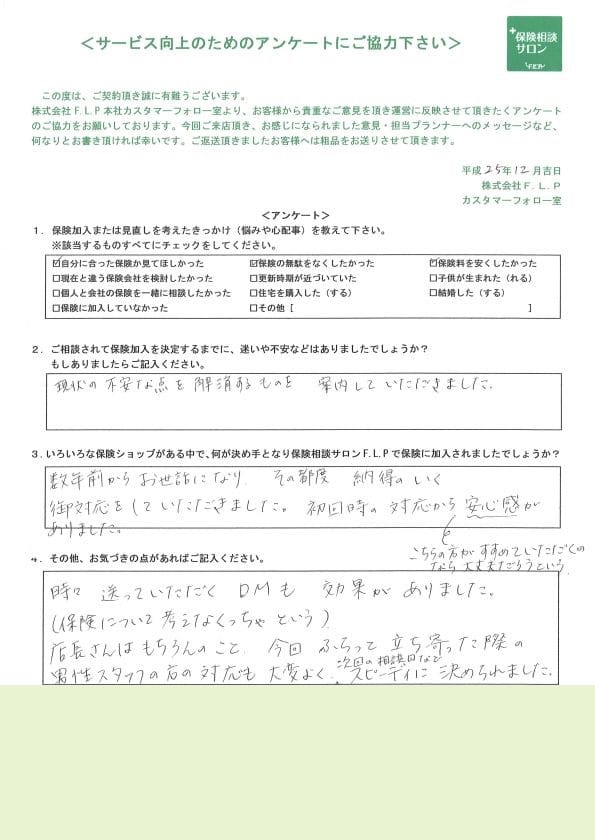 ＜サービス向上のためのアンケートにご協力下さい＞
保険相談
サロン
F.L.P
この度は、ご契約頂き誠に有難うございます。
株式会社Ｆ.Ｌ.Ｐ本社カスタマーフォロー室より、お客様から貴重なご意見を頂き運営に反映させて頂きたくアンケート
のご協力をお願いしております。今回ご来店頂き、お感じになられました意見・担当プランナーへのメッセージなど、
何なりとお書き頂ければ幸いです。ご返送頂きましたお客様へは粗品をお送りさせて頂きます。
平成 25年12月吉日
株式会社Ｆ．Ｌ．Ｐ
カスタマーフォロー室
＜アンケート＞
１．保険加入または見直しを考えたきっかけ（悩みや心配事）を教えて下さい。
※該当するものすべてにチェックをしてください。
☑自分に合った保険か見てほしかった ☑保険の無駄をなくしたかった ☑保険料を安くしたかった
□現在と違う保険会社を検討したかった □更新時期が近づいていた □子供が生まれた（れる）
□個人と会社の保険を一緒に相談したかった □住宅を購入した（する） □結婚した（する）
□保険に加入していなかった □その他［ ］
２．ご相談されて保険加入を決定するまでに、迷いや不安などはありましたでしょうか？
もしありましたらご記入ください。
現状の不安な点を解消するものを 案内していただきました。
３．いろいろな保険ショップがある中で、何が決め手となり保険相談サロンＦ.Ｌ.Ｐで保険に加入されましたでしょうか？
数年前からお世話になり、その都度 納得のいく
御対応をしていただきました。初回時の対応から安心感が
ありました。
こちらの方がすすめていただくの
なら大丈夫だろうという。
４．その他、お気づきの点があればご記入ください。
時々送っていただくDMも 効果がありました。
(保険について考えなくっちゃという)
店長さんはもちろんのこと、今回ふらって立ち寄った際の
次回の相談日など
男性スタッフの方の対応も大変よく、スピーディに決められました。